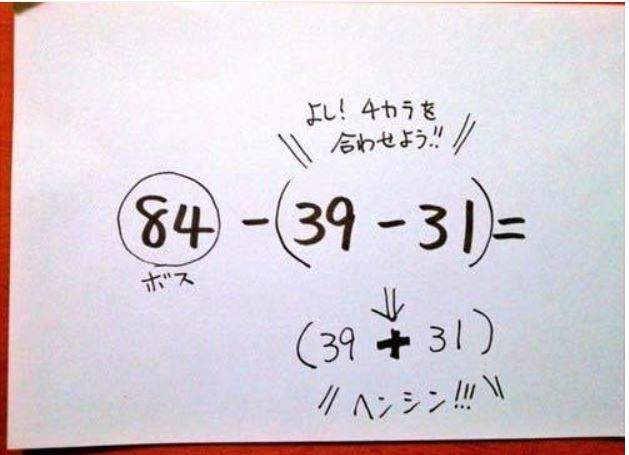 よし! チカラを
合わせよう!!
84 -(39 - 31)=
ボス
(39 + 31)
ヘンシン!!!